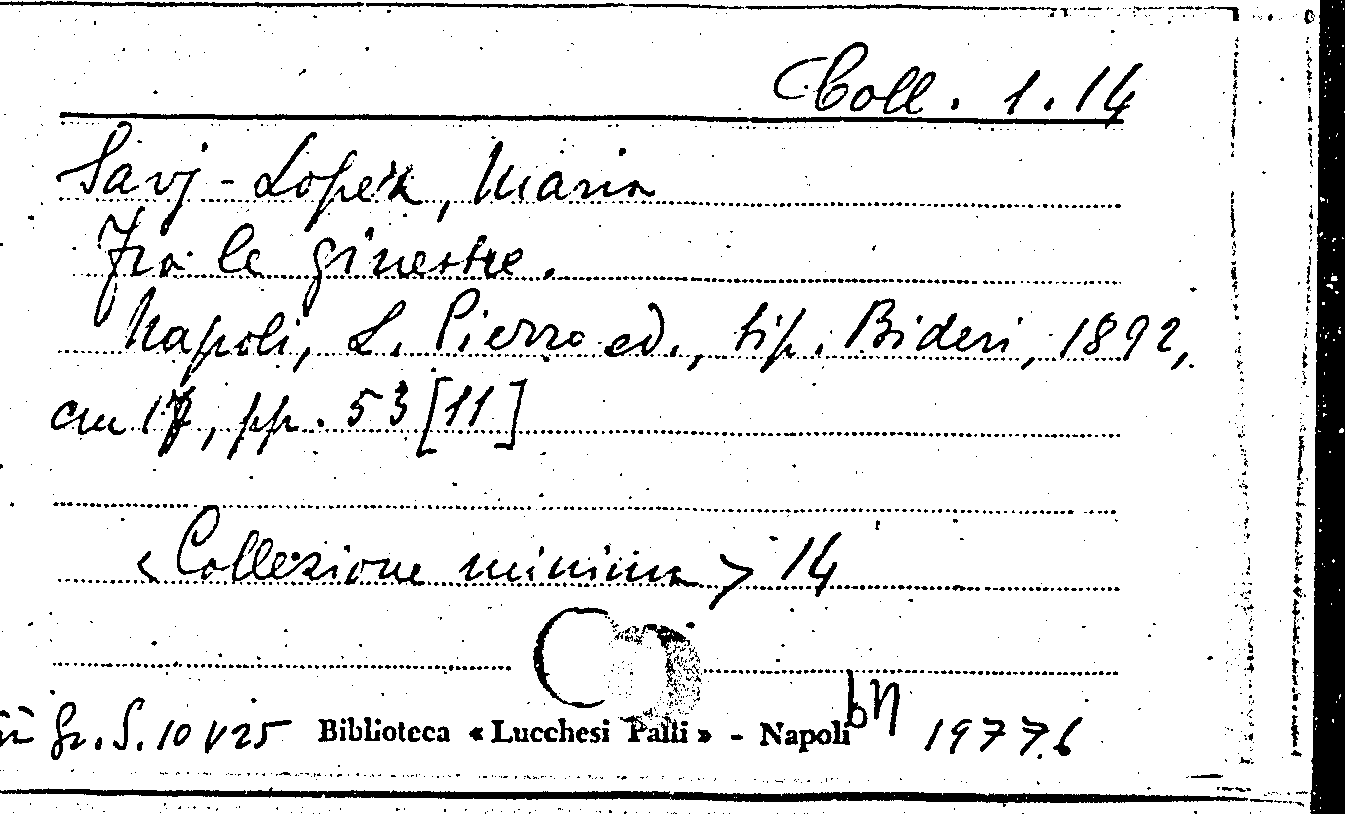 Coll. 1.14
Savj-Lopez, Maria
Fra le ginestre.
Napoli, L. Pierro ed., tip. Bideri, 1892,
cm 17, pp. 53 [11]
<Collezione minima> 14
Gr. S. 10 V 25 Biblioteca « Lucchesi Palli » - Napoli bn 19776